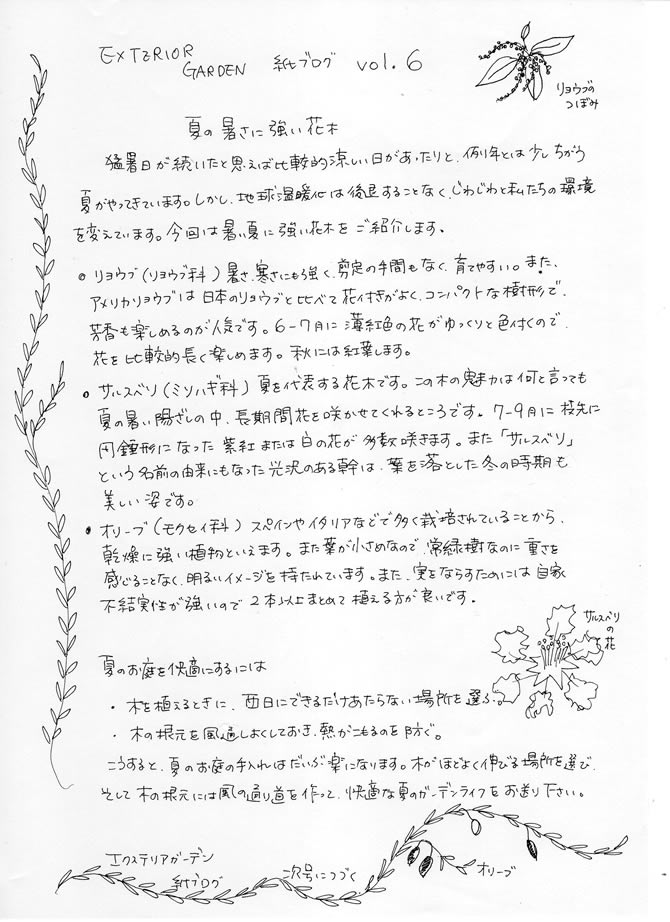 EXTERIOR
GARDEN 紙ブログ vol.6
リョウブの
つぼみ
夏の暑さに強い花木
猛暑日が続いたと思えば比較的涼しい日があったりと、例年とは少しちがう
夏がやってきています。しかし、地球温暖化は後退することなく、じわじわと私たちの環境
を変えています。今回は暑い夏に強い花木をご紹介します。
・リョウブ(リョウブ科) 暑さ、寒さにも強く、剪定の手間もなく、育てやすい。また、
アメリカリョウブは日本のリョウブと比べて花付きがよく、コンパクトな樹形で、
芳香も楽しめるのが人気です。6-7月に薄紅色の花がゆっくりと色付くので、
花を比較的長く楽しめます。秋には紅葉します。
・サルスベリ(ミソハギ科) 夏を代表する花木です。この木の魅力は何と言っても
夏の暑い陽ざしの中、長期間花を咲かせてくれるところです。7-9月に枝先に
円錐形になった紫紅または白の花が多数咲きます。また「サルスベリ」
という名前の由来にもなった光沢のある幹は、葉を落とした冬の時期も
美しい姿です。
・オリーブ(モクセイ科) スペインやイタリアなどで多く栽培されていることから、
乾燥に強い植物といえます。また葉が小さめなので、常緑樹なのに重さを
感じることなく、明るいイメージを持たれています。また、実をならすためには自家
不結実性が強いので2本以上まとめて植える方が良いです。
サルスベリ
の花
夏のお庭を快適にするには
・木を植えるときに、西日にできるだけあたらない場所を選ぶ。
・木の根元を風通しよくしておき、熱がこもるのを防ぐ。
こうすると、夏のお庭の手入れはだいぶ楽になります。木がほどよく伸びる場所を選び、
そして木の根元には風の通り道を作って、快適な夏のガーデンライフをお送り下さい。
エクステリアガーデン
紙ブログ 次号につづく
オリーブ